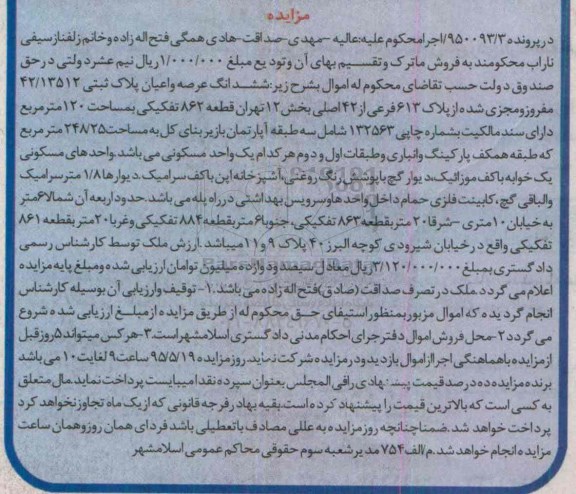 مزایده
در پرونده ۹۵۰۰۹۳/۳/اجرا محکوم علیه:عالیه –مهدی-صداقت-هادی همگی فتح اله زاده و خانم زلفناز سیفی
ناراب محکومند به فروش ماترک و تقسیم بهای آن و تودیع مبلغ ۱/۰۰۰/۰۰۰ ریال نیم عشر دولتی در حق
صندوق دولت حسب تقاضای محکوم له اموال بشرح زیر:ششدانگ عرصه واعیان پلاک ثبتی ۴۲/۱۳۵۱۲
مفروز و مجزی شده از پلاک ۶۱۳ فرعی از ۴۲ اصلی بخش ۱۲ تهران قطعه ۸۶۲ تفکیکی بمساحت ۱۲۰ متر مربع
دارای سند مالکیت بشماره چاپی ۱۳۲۵۶۳ شامل سه طبقه آپارتمان بازیر بنای کل به مساحت ۲۴۸/۲۵ متر مربع
که طبقه همکف پارکینگ وانباری و طبقات اول و دوم هر کدام یک واحد مسکونی می باشد.واحدهای مسکونی
یک خوابه باکف موزائیک،دیوار گچ باپوشش رنگ روغنی،آشپزخانه اپن باکف سرامیک.دیوارها ۱/۸ متر سرامیک
والباقی گچ، کابینت فلزی حمام داخل واحد هاوسرویس بهداشتی در راه پله می باشد.حدودار بعه آن شمالا۶متر
به خیابان ۱۰متری –شرقا ۲۰ متر بقطعه ۸۶۳ تفکیکی، جنوبا۶متر بقطعه ۸۸۴ تفکیکی وغربا ۲۰متر بقطعه ۸۶۱
تفکیکی واقع در خیابان شیرودی کوچه البرز ۴۰ پلاک ۹ و ۱۱ میباشد .ارزش ملک توسط کارشناس رسمی
دادگستری بمبلغ ۳/۱۲۰/۰۰۰/۰۰۰ریال معادل سیصد ودوازده میلیون تومان ارزیابی شده ومبلغ پایه مزایده
اعلام می گردد.ملک در تصرف صداقت (صادق)فتح اله زاده می باشد.۱- توقیف وارزیابی آن بوسیله کارشناس
انجام گردیده که اموال مزبور بمنظور استیفای حق محکوم له از طریق مزایده از مبلغ ارزیابی شده شروع
می گردد ۲-محل فروش اموال دفتر اجرای احکام مدنی دادگستری اسلامشهر است.۳-هر کس میتواند ۵روز قبل
از مزایده باهماهنگی اجرا از اموال بازدید و در مزایده شرکت نماید.روز مزایده ۹۵/۵/۱۹ ساعت ۹ لغایت ۱۰ می باشد
برنده مزایده ده درصد قیمت پیشنهادی رافی المجلس بعنوان سپرده نقدا میبایست پرداخت نماید مال متعلق
به کسی است که بالاترین قیمت را پیشنهاد کرده است.بقیه بها در فرجه قانونی که از یک ماه تجاوز نخواهد کرد
پرداخت خواهد شد.ضمنا چنانچه روز مزایده به عللی مصادف باتعطیلی باشد فردای همان روز و همان ساعت
مزایده انجام خواهد شد.م/الف۷۵۴ مدیر شعبه سوم حقوقی محاکم عمومی اسلامشهر